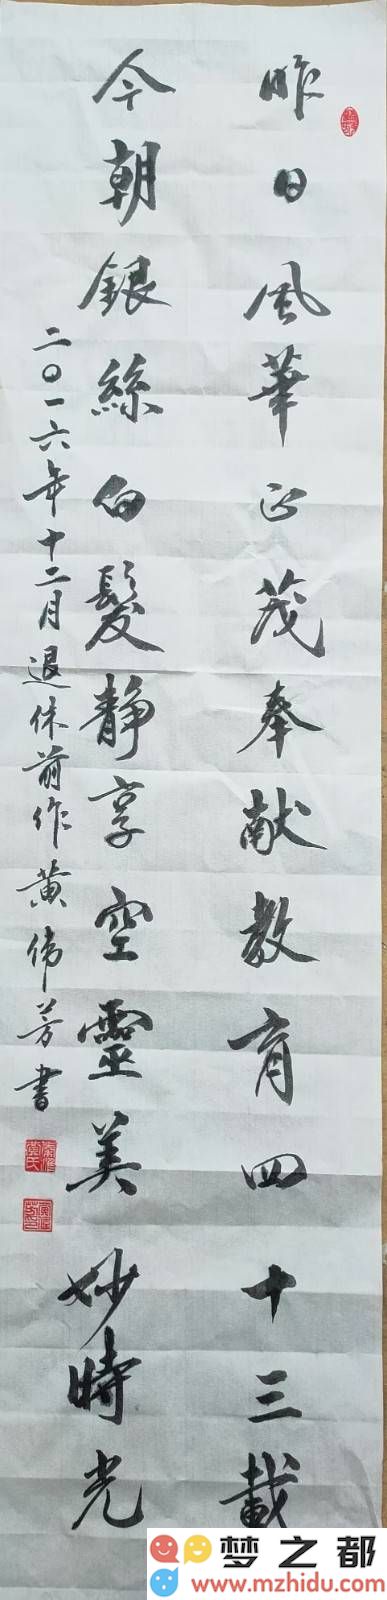 昨日风華正茂奉献教育四十三載
今朝銀絲白髮静享空靈美妙時光
二〇一六年十二月退休前作黄伟芳書
梦之都
www.mzhidu.com